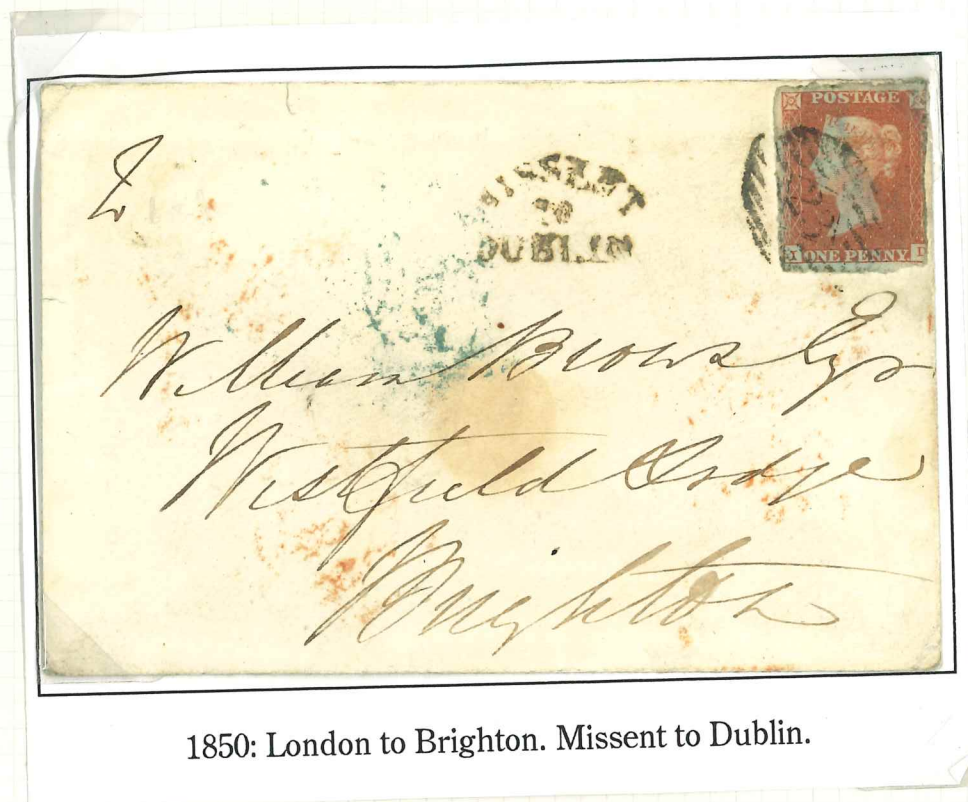 POSTAGE
To
MISSENT
TO
DUBLIN
I ONE PENNY
William Brown Esqr
Westfield Lodge
Brighton
1850: London to Brighton. Missent to Dublin.